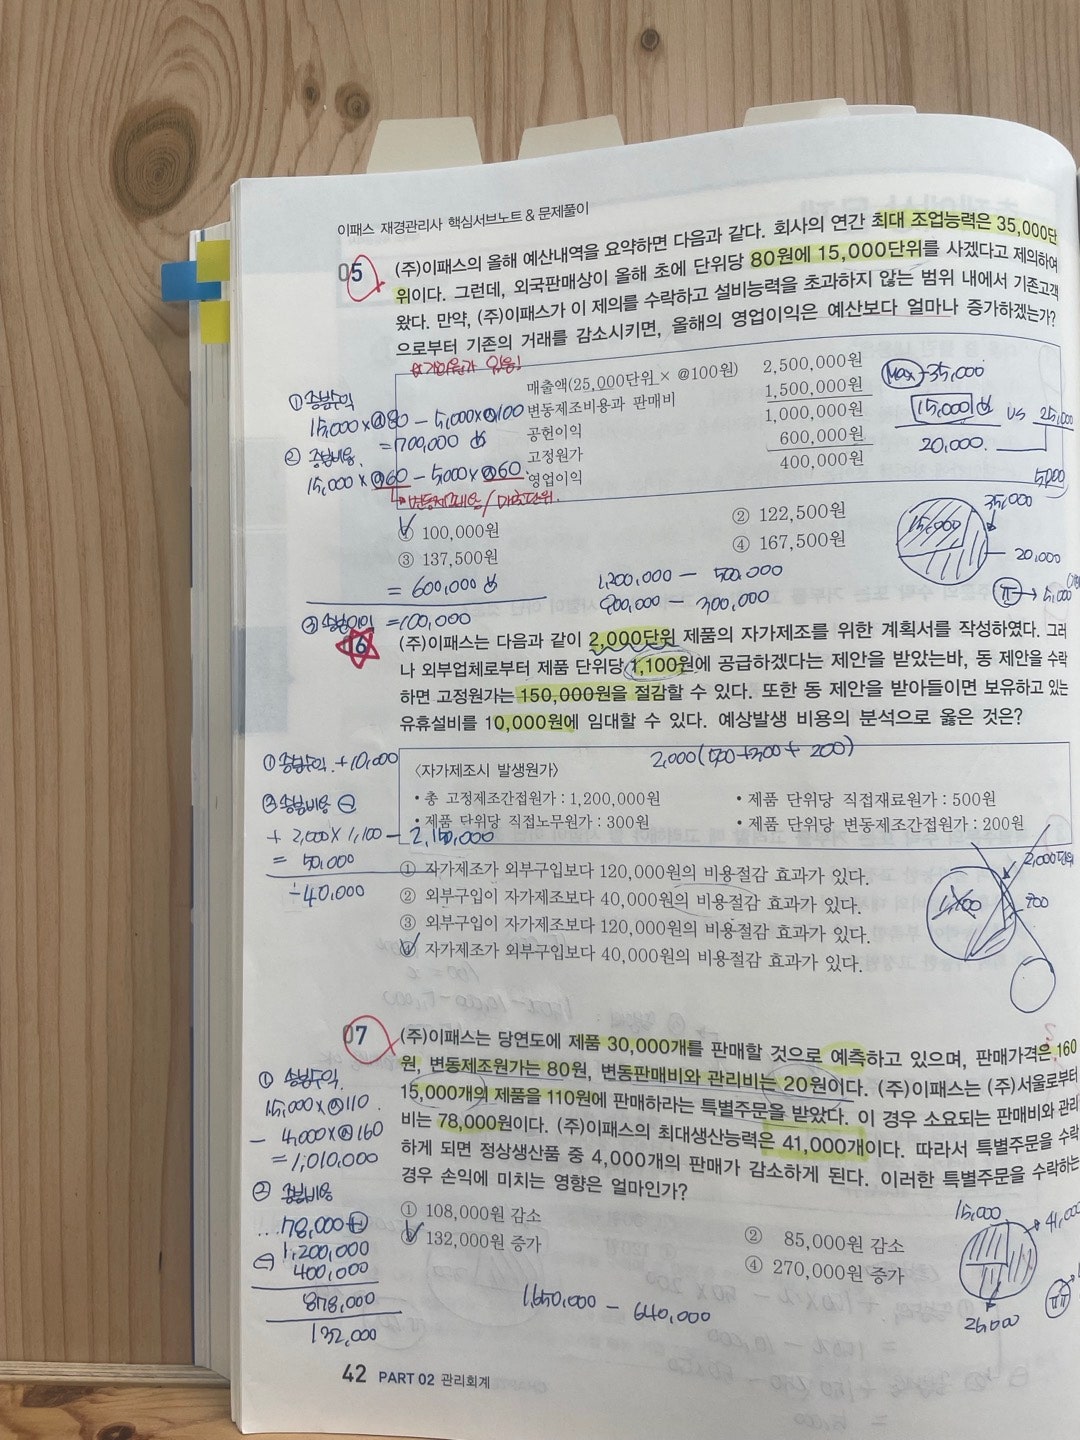 이패스 재경관리사 핵심서브노트 & 문제풀이
05
(주)이패스의 올해 예산내역을 요약하면 다음과 같다. 회사의 연간 최대 조업능력은 35,000단
위이다. 그런데, 외국판매상이 올해 초에 단위당 80원에 15,000단위를 사겠다고 제의하여
왔다. 만약, (주)이패스가 이 제의를 수락하고 설비능력을 초과하지 않는 범위 내에서 기존고객
으로부터 기존의 거래를 감소시키면, 올해의 영업이익은 예산보다 얼마나 증가하겠는가?
매출액(25,000단위 × @100원) 2,500,000원
변동제조비용과 판매비 1,500,000원
공헌이익 1,000,000원
고정원가 600,000원
영업이익 400,000원
MAX 35,000
15,000 vs 25,000
20,000
5,000
① 증분수익
15,000×@80 - 5,000×@100
= 700,000
② 증분비용
15,000×@60 - 5,000×@60
① 100,000원
② 122,500원
③ 137,500원
④ 167,500원
35,000
15,000
20,000
= 600,000
1,200,000 - 500,000
900,000 - 300,000
③ 증분이익 = 100,000
06
(주)이패스는 다음과 같이 2,000단위 제품의 자가제조를 위한 계획서를 작성하였다. 그러
나 외부업체로부터 제품 단위당 1,100원에 공급하겠다는 제안을 받았는바, 동 제안을 수락
하면 고정원가는 150,000원을 절감할 수 있다. 또한 동 제안을 받아들이면 보유하고 있는
유휴설비를 10,000원에 임대할 수 있다. 예상발생 비용의 분석으로 옳은 것은?
① 증분수익 +10,000
② 증분비용
+ 2,000×1,100 - 2,150,000
= 50,000
-40,000
2,000(500+300+200)
〈자가제조시 발생원가〉
• 총 고정제조간접원가 : 1,200,000원
• 제품 단위당 직접재료원가 : 500원
• 제품 단위당 직접노무원가 : 300원
• 제품 단위당 변동제조간접원가 : 200원
① 자가제조가 외부구입보다 120,000원의 비용절감 효과가 있다.
② 외부구입이 자가제조보다 40,000원의 비용절감 효과가 있다.
③ 외부구입이 자가제조보다 120,000원의 비용절감 효과가 있다.
④ 자가제조가 외부구입보다 40,000원의 비용절감 효과가 있다.
2,000단위
07
(주)이패스는 당연도에 제품 30,000개를 판매할 것으로 예측하고 있으며, 판매가격은 160
원, 변동제조원가는 80원, 변동판매비와 관리비는 20원이다. (주)이패스는 (주)서울로부터
15,000개의 제품을 110원에 판매하라는 특별주문을 받았다. 이 경우 소요되는 판매비와 관리
비는 78,000원이다. (주)이패스의 최대생산능력은 41,000개이다. 따라서 특별주문을 수락
하게 되면 정상생산품 중 4,000개의 판매가 감소하게 된다. 이러한 특별주문을 수락하는
경우 손익에 미치는 영향은 얼마인가?
① 증분수익
15,000×@110
- 4,000×@160
= 1,010,000
② 증분비용
78,000
1,200,000
400,000
878,000
132,000
① 108,000원 감소
② 85,000원 감소
③ 132,000원 증가
④ 270,000원 증가
1,650,000 - 640,000
15,000
26,000
42 PART 02 관리회계